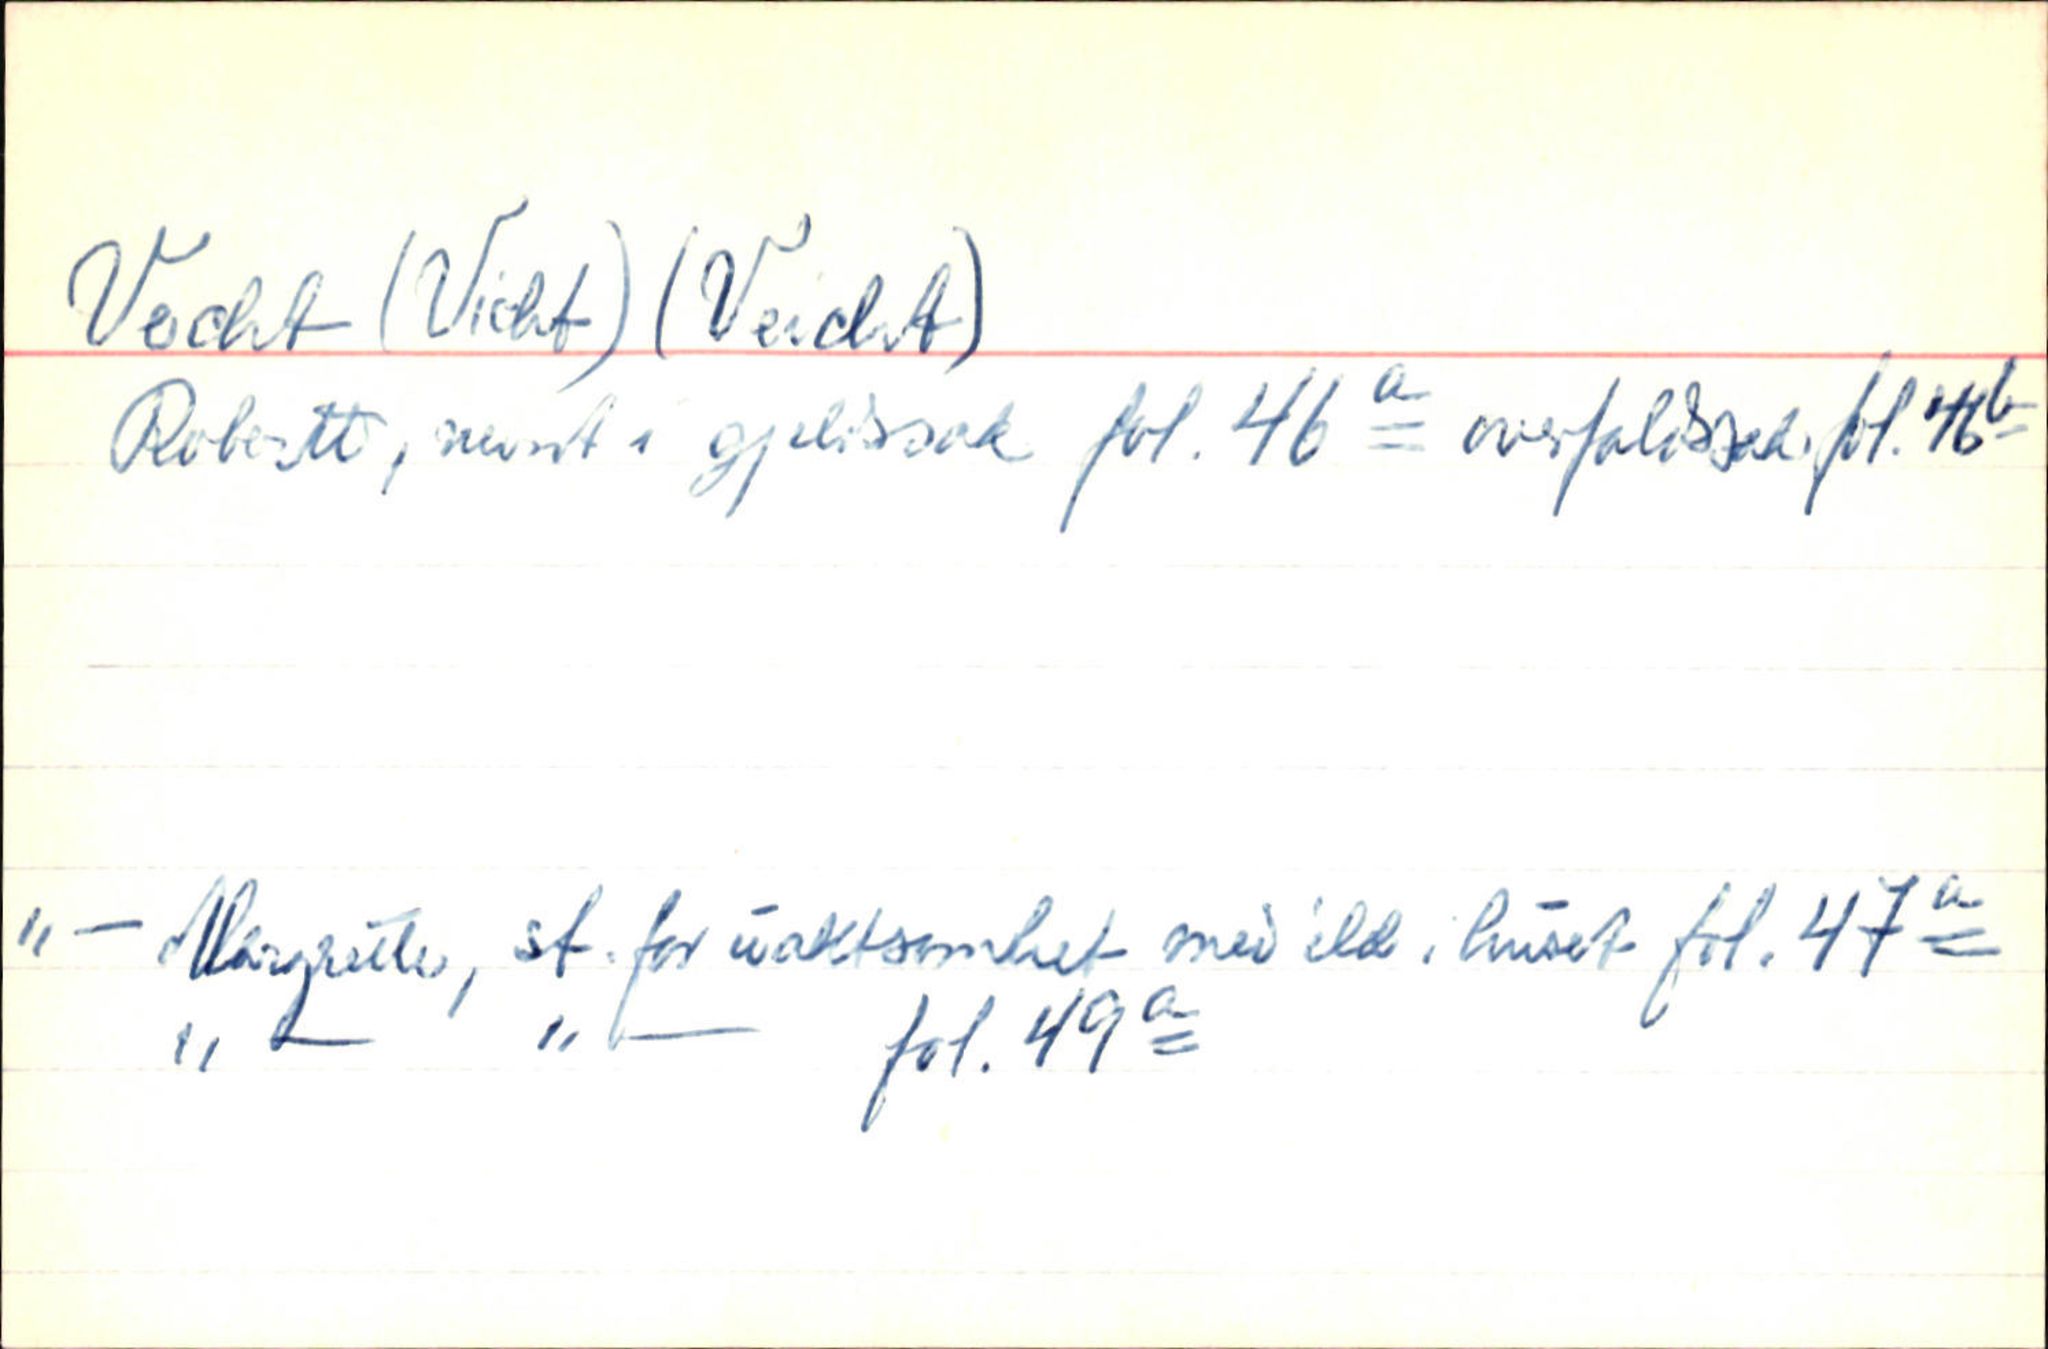 Vecht (Vicht) (Veicht)
Robertt, nevnt i gjeldssak fol. 46 a overfaldssak. fol. 46 b
"— Margrette, st. for uaktsomhet med ild i huset fol. 47 a
"— "— fol. 49 a